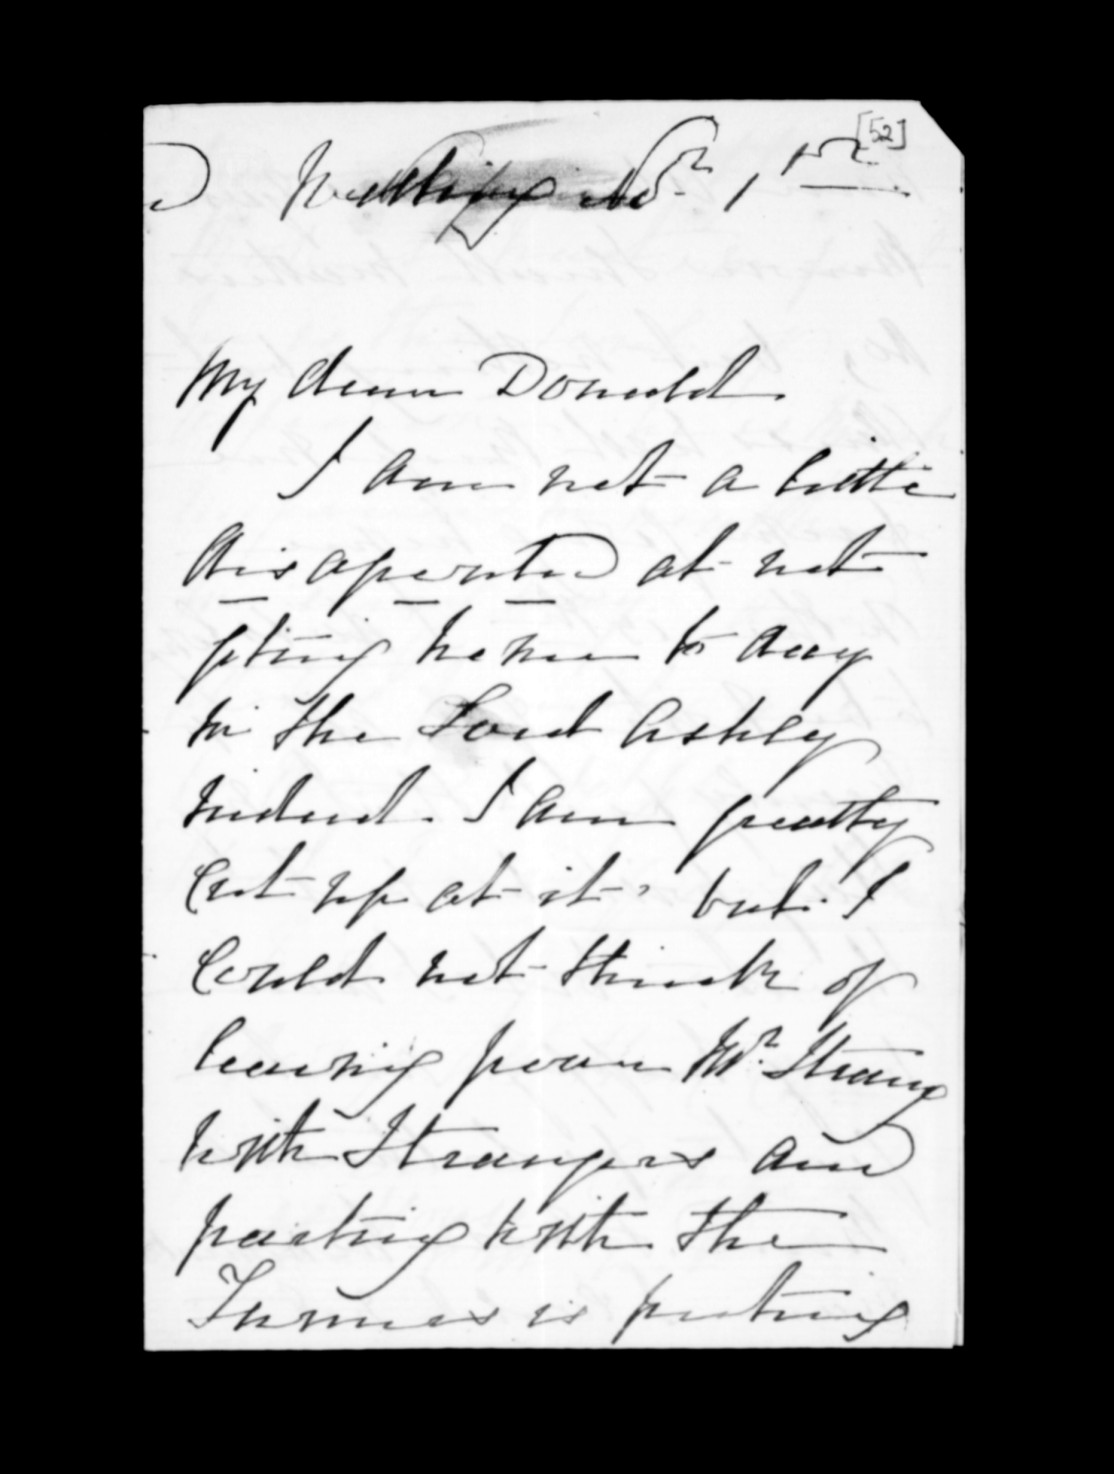 [52]
My dear Donald.
I am not a little
disapointed at not
gting home to day
in the Lord Ashley
indeed. I am greatly
Cut up at it, but. I
Could not think of
leaving poor Mr. Strang
with Strangers and
parting with the
is puting